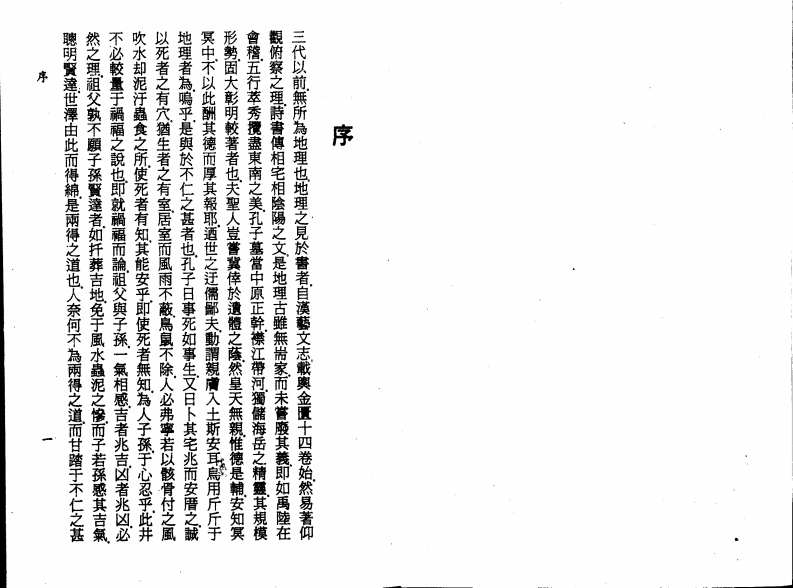 序
三代以前.無所為地理也.地理之見於書者.自漢藝文志載輿金匱十四卷始.然易著仰
觀俯察之理.詩書傳相宅相陰陽之文.是地理古雖無耑家.而未嘗廢其義.即如禹陵在
會稽.五行萃秀.攬盡東南之美.孔子墓當中原正幹.襟江帶河.獨儲海岳之精靈.其規模
形勢.固大彰明較著者也.夫聖人豈嘗冀倖於遺體之蔭.然皇天無親.惟德是輔.安知冥
冥中.不以此酬其德而厚其報耶.迺世之迂儒鄙夫.動謂親膚入土斯安耳.烏用斤斤于
地理者為.嗚乎.是與於不仁之甚者也.孔子曰事死如事生.又曰卜其宅兆而安厝之.誠
以死者之有穴.猶生者之有室.居室而風雨不蔽.鳥鼠不除.人必弗寧.若以骸骨付之風
吹水却泥汙蟲食之所.使死者有知.其能安乎.即使死者無知.為人子孫.于心忍乎.此井
不必較量于禍福之說也.即就禍福而論.祖父與子孫.一氣相感.吉者兆吉.凶者兆凶.必
然之理.祖父孰不願子孫賢達者.如扦葬吉地.免于風水蟲泥之慘.而子若孫感其吉氣.
聰明賢達.世澤由此而得綿.是兩得之道也.人奈何不為兩得之道.而甘踏于不仁之甚
序
一